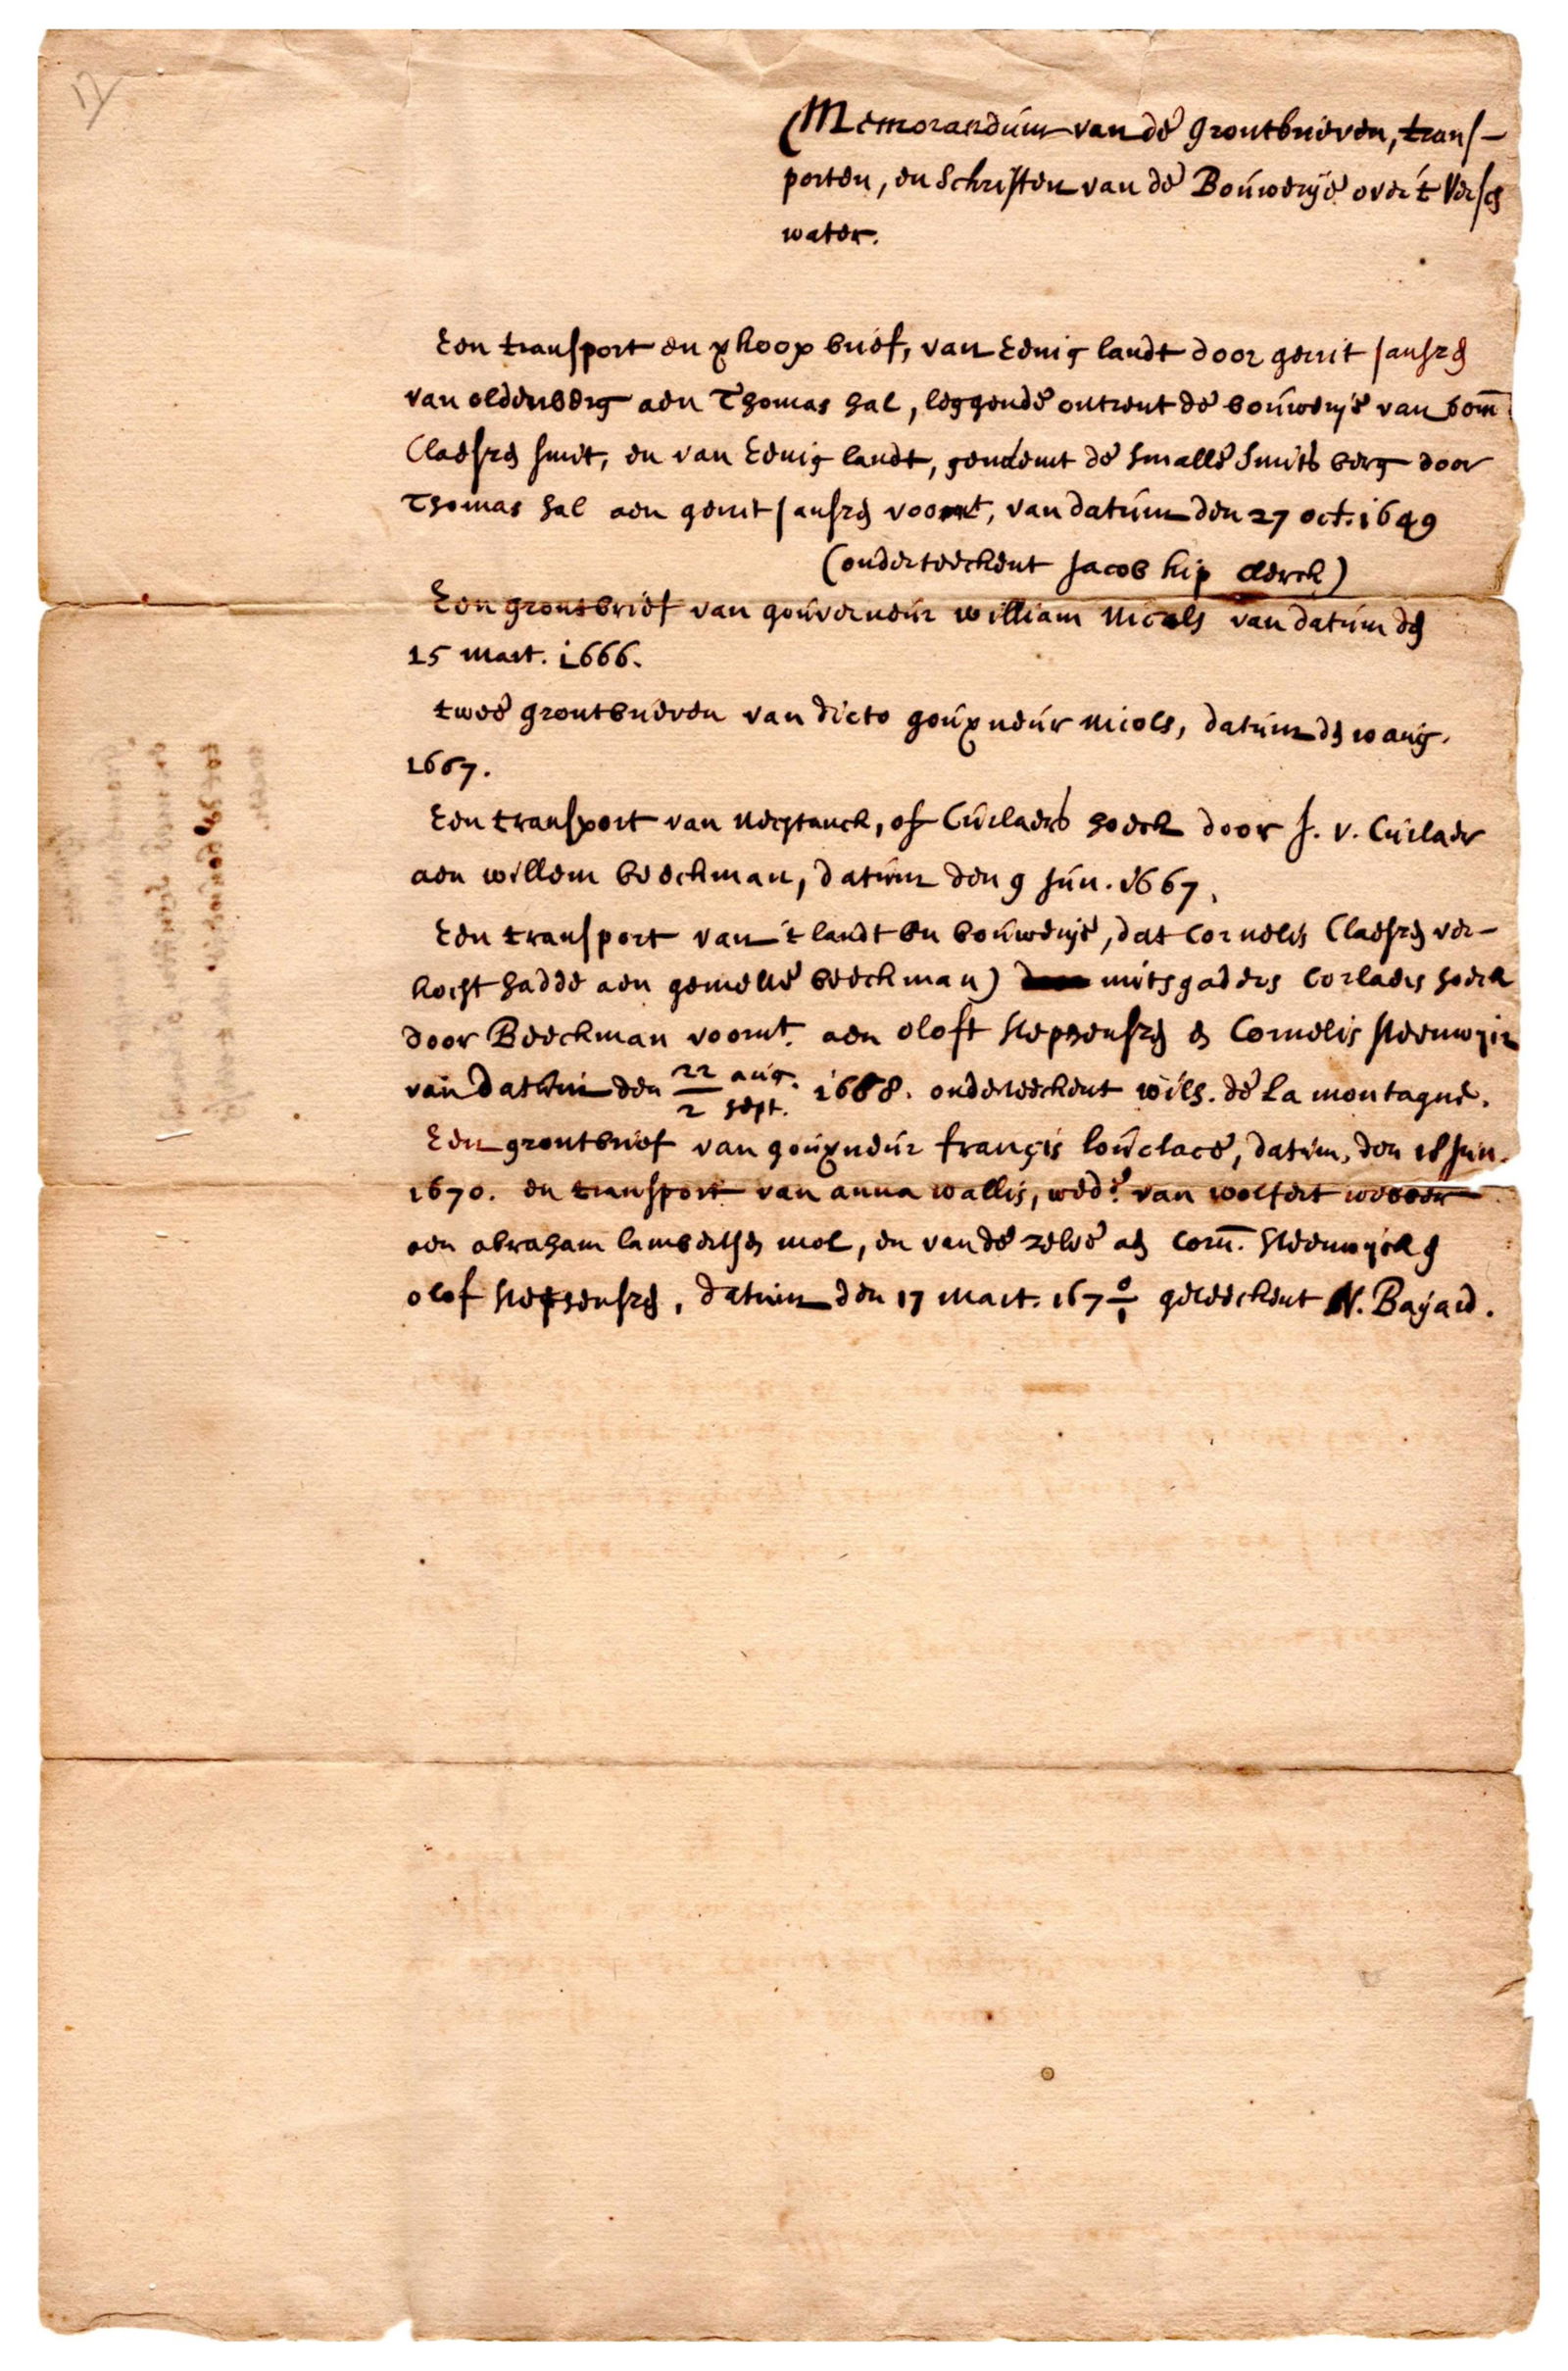 Memorandum van de grontbrieven, trans-
porten, en schriften van de Bouwerije over 't Versch
water.
Een transport en xkoop brief, van Eenig landt door gerrit Jansen
van oldenberg aen Thomas hal, leggende ontrent de bouwerije van
Claesen smit, en van Eenig landt, genaemt de smalle smits berg door
Thomas hal aen gerrit Jansen voornt, van datum den 27 oct. 1649
(onderteeckent Jacob kip clerck)
Een grontbrief van gouverneur william Nicols van datum den
15 mart. 1666.
twee grontbrieven van dicto gouverneur Nicols, datum den 10 aug.
1667.
Een transport van Nechtanck, of Curlaers hoeck door J. v. Curlaer
aen willem beeckman, datum den 9 Jun. 1667.
Een transport van 't landt en bouwerije, dat Cornelis Claesen ver-
kocht hadde aen gemelte beeckman) mitsgaders Corlaers hoeck
door Beeckman voornt. aen oloft stephensen en Cornelis steenwyck
van datum den 22 aug. / 2 sept. 1668. onderteeckent wils. de La montagne.
Een grontbrief van gouverneur françis louelace, datum, den 18 Jun.
1670. en transport van anna wallis, wede. van wolfert webber
aen abraham lambertsen mol, en van de zelve aen Corn. steenwijck en
olof stephensen, datum den 17 mart. 167 0/1 geteeckent N. Bayard.